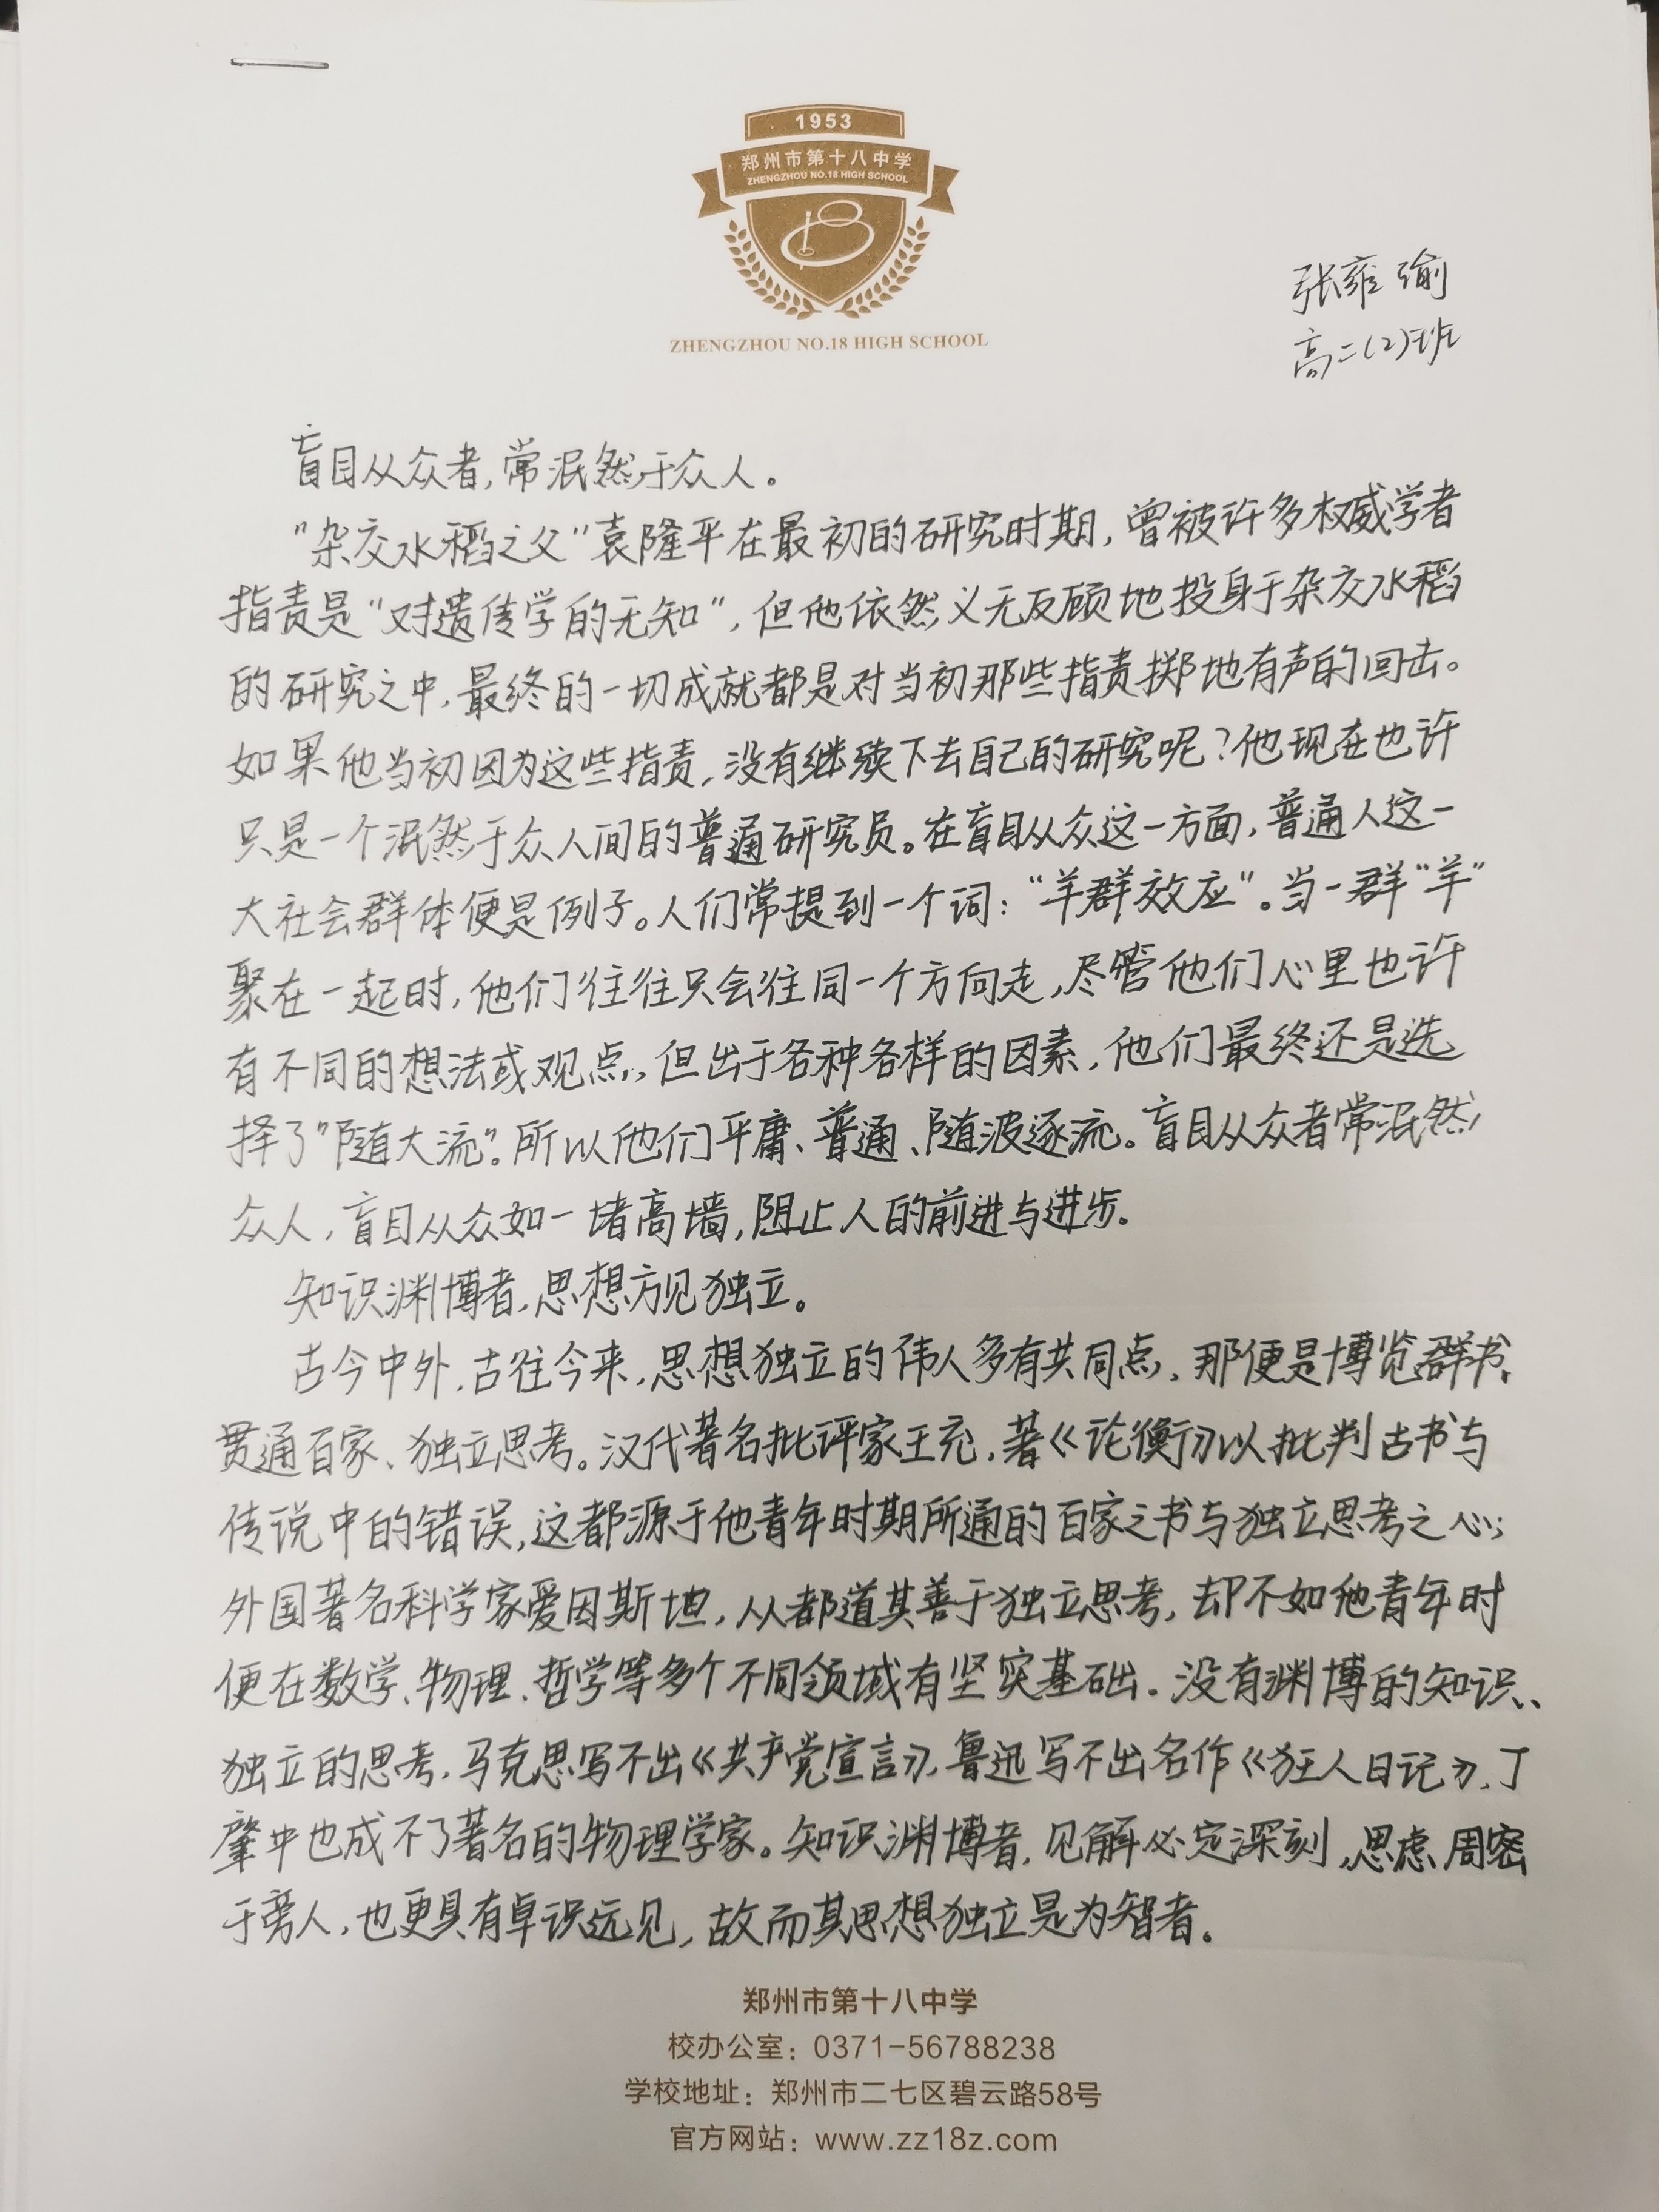 1953
郑州市第十八中学
ZHENGZHOU NO.18 HIGH SCHOOL
ZHENGZHOU NO.18 HIGH SCHOOL
张雍瑜
高二(2)班
盲目从众者,常泯然于众人。
"杂交水稻之父"袁隆平在最初的研究时期,曾被许多权威学者
指责是"对遗传学的无知",但他依然义无反顾地投身于杂交水稻
的研究之中,最终的一切成就都是对当初那些指责掷地有声的回击。
如果他当初因为这些指责,没有继续下去自己的研究呢?他现在也许
只是一个泯然于众人间的普通研究员。在盲目从众这一方面,普通人这一
大社会群体便是例子。人们常提到一个词:"羊群效应"。当一群"羊"
聚在一起时,他们往往只会往同一个方向走,尽管他们心里也许
有不同的想法或观点,但出于各种各样的因素,他们最终还是选
择了"随大流"。所以他们平庸、普通、随波逐流。盲目从众者常泯然
众人,盲目从众如一堵高墙,阻止人的前进与进步。
知识渊博者,思想方见独立。
古今中外,古往今来,思想独立的伟人多有共同点,那便是博览群书、
贯通百家、独立思考。汉代著名批评家王充,著《论衡》以批判古书与
传说中的错误,这都源于他青年时期所通的百家之书与独立思考之心;
外国著名科学家爱因斯坦,人人都道其善于独立思考,却不如他青年时
便在数学、物理、哲学等多个不同领域有坚实基础。没有渊博的知识、
独立的思考,马克思写不出《共产党宣言》,鲁迅写不出名作《狂人日记》,丁
肇中也成不了著名的物理学家。知识渊博者,见解必定深刻,思虑周密
于旁人,也更具有卓识远见,故而其思想独立是为智者。
郑州市第十八中学
校办公室:0371-56788238
学校地址:郑州市二七区碧云路58号
官方网站:www.zz18z.com